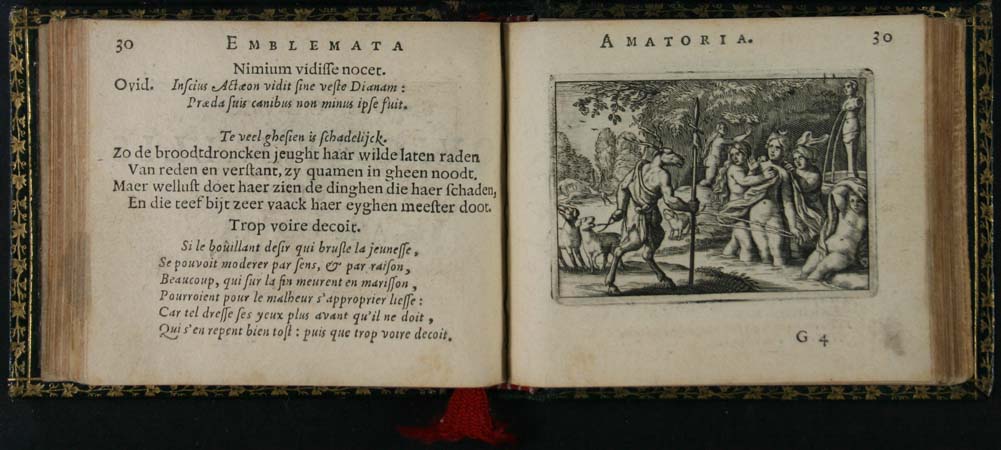 30 EMBLEMATA
Nimium vidisse nocet.
Ovid. Inscius Actæon vidit sine veste Dianam:
Præda suis canibus non minus ipse fuit.
Te veel ghesien is schadelijck.
Zo de broodtdroncken jeught haar wilde laten raden
Van reden en verstant, zy quamen in gheen noodt.
Maer wellust doet haer zien de dinghen die haer schaden,
En die teef bijt zeer vaack haer eyghen meester doot.
Trop voire decoit.
Si le boüillant desir qui brusle la jeunesse,
Se pouvoit moderer par sens, & par raison,
Beaucoup, qui sur la fin meurent en marisson,
Pourroient pour le malheur s'approprier liesse:
Car tel dresse ses yeux plus avant qu'il ne doit,
Qui s'en repent bien tost: puis que trop voire decoit.
AMATORIA. 30
G 4